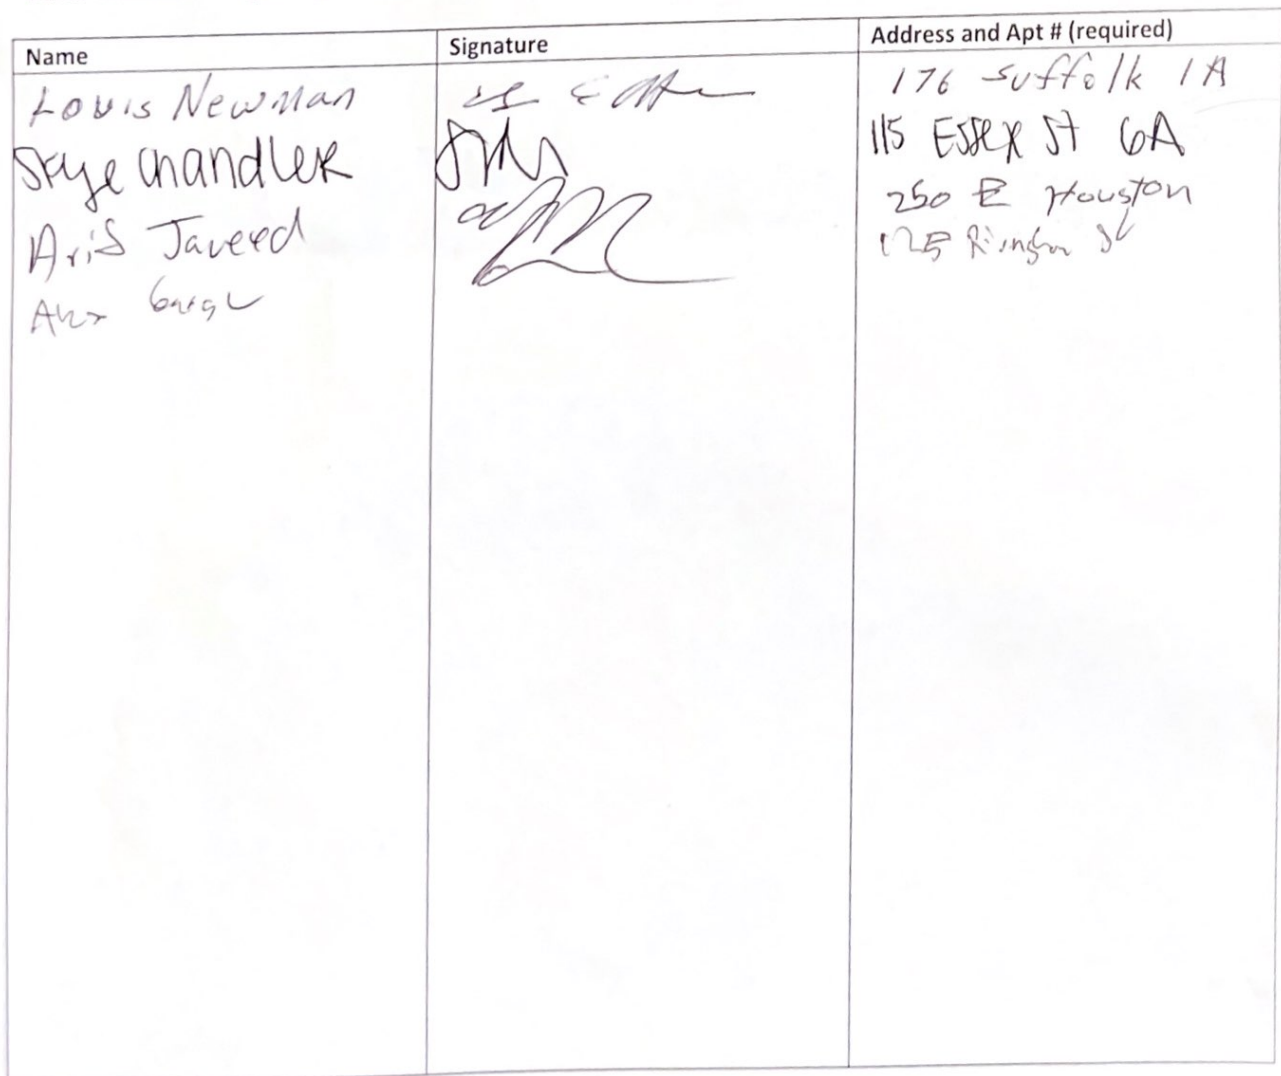 Name Signature Address and Apt # (required)
Louis Newman 176 Suffolk 1A
Skye Chandler 115 Essex St 6A
Aris Javeed 250 E Houston
Alex 125 Rivington St